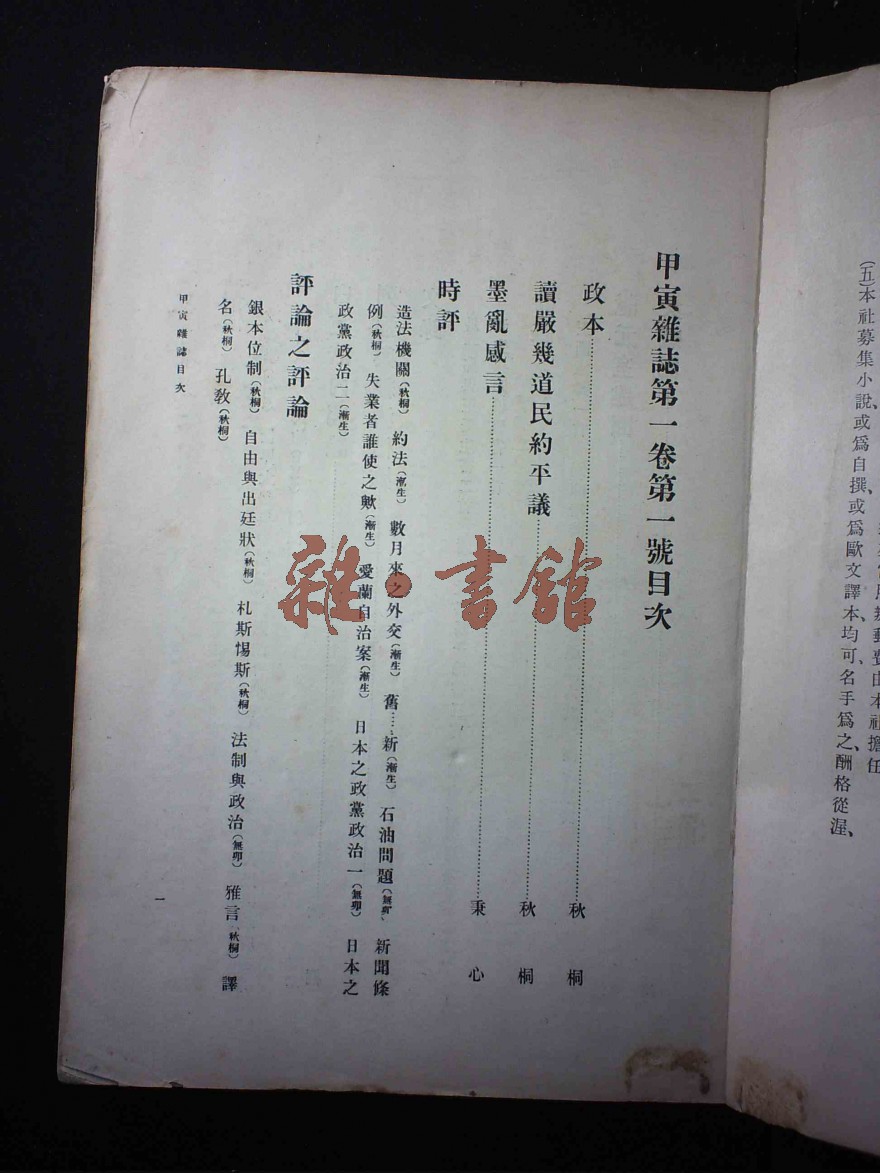 (五)本社募集小說、或爲自撨或爲歐文譯本、均可、名手爲之、酬格從渥、
甲寅雜誌第一卷第一號目次
政本……秋桐
讀嚴幾道民約平議……秋桐
墨亂感言……秉心
時評
造法機關(秋桐) 約法(漸生) 數月來之外交(漸生) 舊……新(漸生) 石油問題(無卯) 新聞條
例(秋桐) 失業者誰使之歟(漸生) 愛蘭自治案(漸生) 日本之政黨政治一(無卯) 日本之
政黨政治二(漸生)
評論之評論
銀本位制(秋桐) 自由與出廷狀(秋桐) 札斯惕斯(秋桐) 法制與政治(無卯) 雅言(秋桐) 譯
名(秋桐) 孔敎(秋桐)
甲寅雜誌目次
一
雜·書館